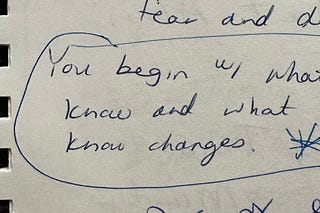 fear and d
You begin w/ what
know and what
know changes.